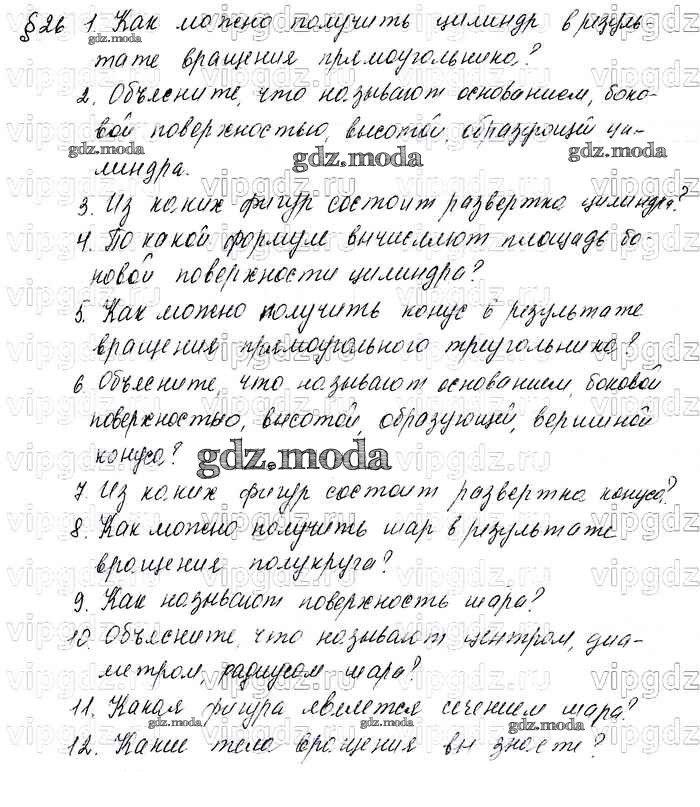 §26 1. Как можно получить цилиндр в резуль-
тате вращения прямоугольника?
2. Объясните, что называют основанием, боко-
вой поверхностью, высотой, образующей ци-
линдра.
3. Из каких фигур состоит развертка цилиндра?
4. По какой формуле вычисляют площадь бо-
ковой поверхности цилиндра?
5. Как можно получить конус в результате
вращения прямоугольного треугольника?
6. Объясните, что называют основанием, боковой
поверхностью, высотой, образующей, вершиной
конуса?
gdz.moda
7. Из каких фигур состоит развертка конуса?
8. Как можно получить шар в результате
вращения полукруга?
9. Как называют поверхность шара?
10. Объясните, что называют центром, диа-
метром, радиусом шара?
11. Какая фигура является сечением шара?
12. Какие тела вращения вы знаете?